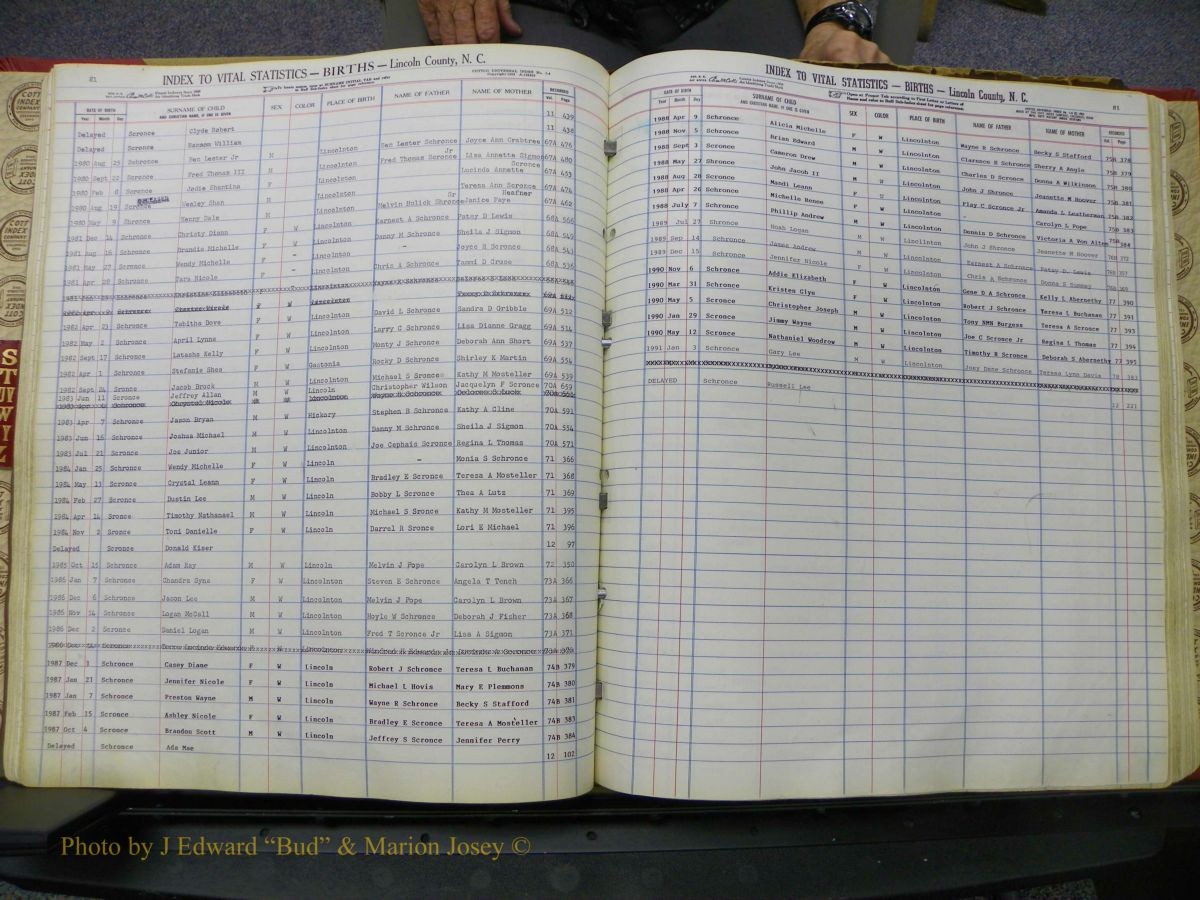 81
INDEX TO VITAL STATISTICS — BIRTHS — Lincoln County, N. C.
DATE OF BIRTH SURNAME OF CHILD AND CHRISTIAN NAME, IF ONE IS GIVEN SEX COLOR PLACE OF BIRTH NAME OF FATHER NAME OF MOTHER RECORDED
Year Month Day Vol. Page
Delayed Scronce Clyde Robert 11 439
Delayed Scronce William 11 438
1980 Aug 25 Schronce Ben Lester Jr M Lincolnton Ben Lester Schronce Joyce Ann Crabtree 67A 476
1980 Sept 22 Scronce Fred Thomas III M Lincolnton Fred Thomas Scronce Jr Lisa Annette Sigmon 67A 480
1980 Feb Scronce Jodie Shantina F Lincolnton Scronce Lucinda Annette 67A 453
1980 Aug 19 Scronce Wesley Shan M Lincolnton Teresa Ann Scronce 67A 474
1980 May 9 Shronce Kenny Dale M Lincolnton Melvin Hulick Shronce Sr Heafner Janice Faye 67A 462
1981 Dec 14 Schronce Christy Diann F W Lincolnton Earnest A Schronce Patsy D Lewis 68A 566
1981 Aug 16 Scronce Brandie Michelle F - Lincolnton Danny M Scronce Sheila J Sigmon 68A 549
1981 May 27 Scronce Wendy Michelle F Lincolnton - Joyce R Scronce 68A 543
1981 Apr 20 Schronce Tara Nicole F - Lincolnton Chris A Schronce Tammi D Cruse 68A 536
1982 Apr 23 Schronce Tabitha Dove F W Lincolnton David L Schronce Sandra D Gribble 69A 512
1982 May 2 Schronce April Lynne F W Lincolnton Larry C Schronce Lisa Dianne Gragg 69A 514
1982 Sept 17 Schronce Latasha Kelly F W Lincolnton Monty J Schronce Deborah Ann Short 69A 537
1982 Apr 1 Schronce Stefanie Shea F W Gastonia Rocky D Schronce Shirley K Martin 69A 554
1982 Sept 24 Sronce Jacob Brock M W Lincolnton Michael S Sronce Kathy M Mosteller 69A 539
1983 Jun 11 Scronce Jeffrey Allan M W Lincoln Christopher Wilson Jacquelyn F Scronce 70A 659
1983 Apr 7 Schronce Jason Bryan M W Hickory Stephen B Schronce Kathy A Cline 70A 591
1983 Jun 16 Scronce Joshua Michael M W Lincolnton Danny M Scronce Sheila J Sigmon 70A 554
1983 Jul 21 Scronce Joe Junior M W Lincolnton Joe Cephais Scronce Regina L Thomas 70A 571
1984 Jan 25 Schronce Wendy Michelle F W Lincoln - Monia S Schronce 71 366
1984 May 13 Scronce Crystal Leann F W Lincoln Bradley E Scronce Teresa A Mosteller 71 368
1984 Feb 27 Scronce Dustin Lee M W Lincoln Bobby L Scronce Thea A Lutz 71 369
1984 Apr 14 Sronce Timothy Nathanael M W Lincoln Michael S Sronce Kathy M Mosteller 71 395
1984 Nov 2 Sronce Toni Danielle F W Lincoln Darrel R Sronce Lori E Michael 71 396
Delayed Scronce Donald Kiser 12 97
1985 Oct 15 Scronce Adam Ray M W Lincoln Melvin J Pope Carolyn L Brown 72 350
1986 Jan 7 Schronce Chandra Syne F W Lincolnton Steven E Schronce Angela T Tench 73A 366
1986 Dec 6 Schronce Jason Lee M W Lincolnton Melvin J Pope Carolyn L Brown 73A 367
1986 Nov 14 Schronce Logan McCall M W Lincolnton Hoyle W Schronce Deborah J Fisher 73A 368
1986 Dec 2 Scronce Daniel Logan M W Lincolnton Fred T Scronce Jr Lisa A Sigmon 73A 371
1987 Dec 1 Schronce Casey Diane F W Lincoln Robert J Schronce Teresa L Buchanan 74B 379
1987 Jan 21 Schronce Jennifer Nicole F W Lincoln Michael L Hovis Mary E Plemmons 74B 380
1987 Jan 7 Schronce Preston Wayne M W Lincoln Wayne R Schronce Becky S Stafford 74B 381
1987 Feb 15 Scronce Ashley Nicole F W Lincoln Bradley E Scronce Teresa A Mosteller 74B 383
1987 Oct 4 Scronce Brandon Scott M W Lincoln Jeffrey S Scronce Jennifer Perry 74B 384
Delayed Schronce Ada Mae 12 102
INDEX TO VITAL STATISTICS — BIRTHS — Lincoln County, N. C.
81
DATE OF BIRTH SURNAME OF CHILD AND CHRISTIAN NAME, IF ONE IS GIVEN SEX COLOR PLACE OF BIRTH NAME OF FATHER NAME OF MOTHER RECORDED
Year Month Day
1988 Apr 9 Schronce Alicia Michelle F W Lincolnton Wayne R Schronce Becky S Stafford 75B 378
1988 Nov 5 Schronce Brian Edward M W Lincolnton Clarence H Schronce Sherry A Angle 75B 379
1988 Sept 3 Scronce Cameron Drew M W Lincolnton Charles D Scronce Donna A Wilkinson 75B 380
1988 May 27 Shronce John Jacob II M W Lincolnton John J Shronce Jeanette M Hoover 75B 381
1988 Aug 28 Scronce Mandi Leann F W Lincolnton Play C Scronce Jr Amanda L Leatherman 75B 382
1988 Apr 26 Schronce Michelle Renee F W Lincolnton - Carolyn L Pope 75B 383
1988 July 7 Schronce Phillip Andrew M W Lincolnton Dennis D Schronce Victoria A Von Alten 75B 384
1989 Jul 27 Shronce Noah Logan M W Lincolnton John J Shronce Jeanette M Hoover 76B 372
1989 Sep 14 Schronce James Andrew M W Lincolnton Earnest A Schronce Patsy D Lewis
1989 Dec 15 Schronce Jennifer Nicole F W Lincolnton Chris A Schronce Donna S Summey
1990 Nov 6 Schronce Addie Elizabeth F W Lincolnton Gene D A Schronce Kelly L Abernethy 77 390
1990 Mar 31 Schronce Kristen Clyn F W Lincolnton Robert J Schronce Teresa L Buchanan 77 391
1990 May 5 Scronce Christopher Joseph M W Lincolnton Tony NMN Burgess Teresa A Scronce 77 393
1990 Jan 29 Scronce Jimmy Wayne M W Lincolnton Joe C Scronce Jr Regina L Thomas 77 394
1990 May 12 Scronce Nathaniel Woodrow M W Lincolnton Timothy R Scronce Deborah S Abernethy 77 395
1991 Jan 3 Schronce Gary Lee M W Lincolnton Joey Dene Schronce Teresa Lynn Davis 78 383
DELAYED Schronce Russell Lee 12 221
COTT INDEX COMPANY
Photo by J Edward “Bud” & Marion Josey ©